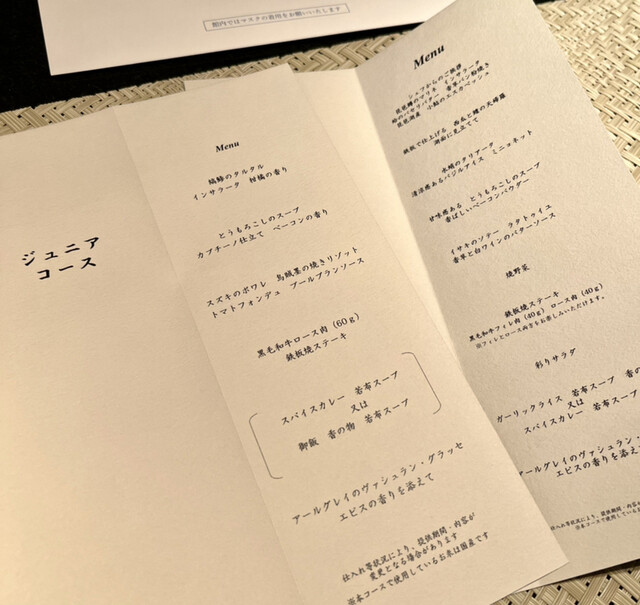 館内ではマスクの着用をお願いいたします
ジュニア
コース
Menu
縞鯵のタルタル
インサラータ 柑橘の香り
とうもろこしのスープ
カプチーノ仕立て ベーコンの香り
スズキのポワレ 烏賊墨の焼きリゾット
トマトフォンデュ ブールブランソース
黒毛和牛ロース肉(60g)
鉄板焼ステーキ
スパイスカレー 若布スープ
又は
御飯 香の物 若布スープ
アールグレイのヴァシュラン・グラッセ
エピスの香りを添えて
仕入れ等状況により、提供期間・内容が
変更となる場合があります
※本コースで使用しているお米は国産です
Menu
シェフからのご挨拶
琵琶鱒のマリネ インサラータ
鮎のパセリバター 香草パン粉焼き
琵琶湖産 小鮎のエスカベッシュ
鉄板で仕上げる
湖面に見立てて
水蛸のタリアータ
清涼感あるバジルアイス ミニョネット
甘味感ある とうもろこしのスープ
香ばしいベーコンパウダー
イサキのソテー ラタトゥイユ
香草と白ワインのバターソース
焼野菜
鉄板焼ステーキ
黒毛和牛フィレ肉(40g) ロース肉(40g)
※フィレとロース両方をお楽しみいただけます。
彩りサラダ
ガーリックライス 若布スープ 香の
又は
スパイスカレー 若布スープ
アールグレイのヴァシュラン・グラッセ
エピスの香りを添えて
仕入れ等状況により、提供期間・内容が
※本コースで使用している